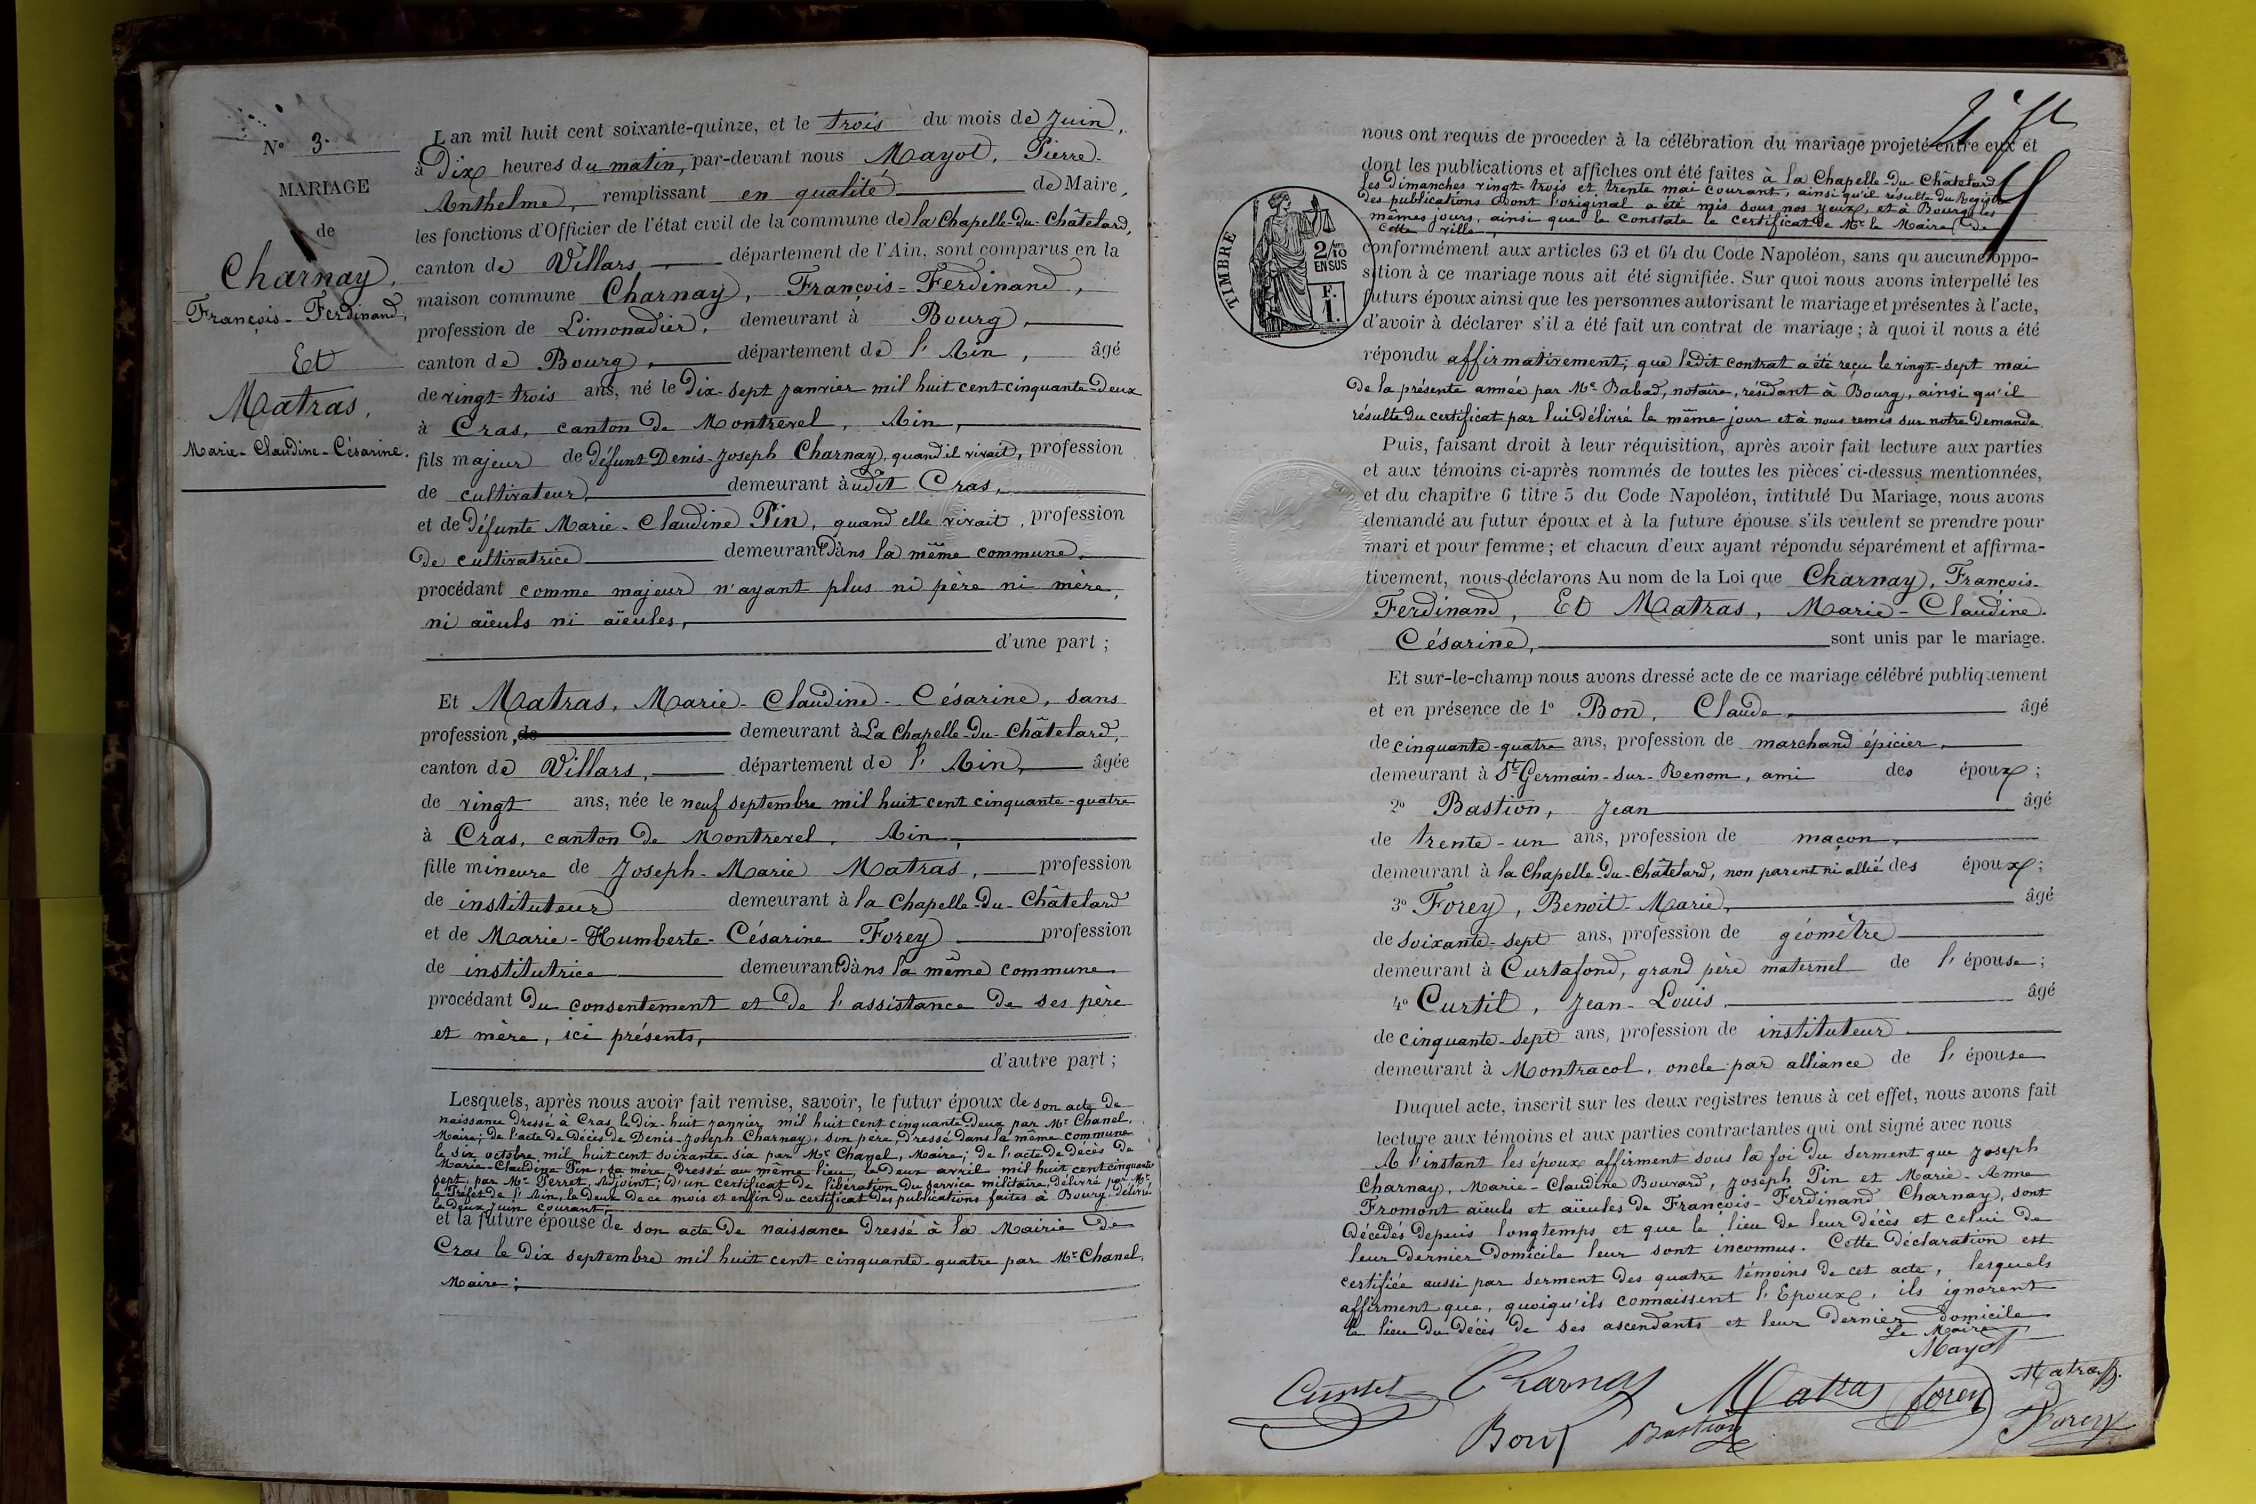 N° 3.
MARIAGE
de
Charnay,
François-Ferdinand,
Et
Matras,
Marie-Claudine-Césarine.
L'an mil huit cent soixante-quinze, et le trois du mois de Juin,
à Dix heures du matin, par-devant nous Mayol, Pierre-
Anthelme, remplissant en qualité de Maire,
les fonctions d'Officier de l'état civil de la commune de la Chapelle-du-Châtelard,
canton de Villars département de l'Ain, sont comparus en la
maison commune Charnay, François-Ferdinand,
profession de Limonadier, demeurant à Bourg,
canton de Bourg, département de l'Ain, âgé
de vingt-trois ans, né le dix-sept janvier mil huit cent cinquante-deux
à Cras, canton de Montrevel, Ain,
fils majeur de défunt Denis-Joseph Charnay, quand il vivait, profession
de cultivateur demeurant audit Cras,
et de défunte Marie-Claudine Pin, quand elle vivait, profession
de cultivatrice demeurant dans la même commune,
procédant comme majeur n'ayant plus ni père ni mère,
ni aïeuls ni aïeules,
d'une part ;
Et Matras, Marie-Claudine-Césarine, sans
profession, de demeurant à La Chapelle-du-Châtelard,
canton de Villars, département de l'Ain, âgée
de vingt ans, née le neuf septembre mil huit cent cinquante-quatre
à Cras, canton de Montrevel, Ain,
fille mineure de Joseph-Marie Matras, profession
de instituteur demeurant à la Chapelle-du-Châtelard
et de Marie-Humberte-Césarine Forey profession
de institutrice demeurant dans la même commune
procédant du consentement et de l'assistance de ses père
et mère, ici présents,
d'autre part ;
Lesquels, après nous avoir fait remise, savoir, le futur époux de son acte de
naissance dressé à Cras, le dix-huit janvier mil huit cent cinquante-deux par Mr Chanel,
Maire; de l'acte de décès de Denis-Joseph Charnay, son père, dressé dans la même commune
le six octobre mil huit cent soixante six par Mr Chanel, Maire; de l'acte de décès de
Marie-Claudine Pin, sa mère, dressé au même lieu, le deux avril mil huit cent cinquante
sept, par Mr Perret, Adjoint; d'un certificat de libération du service militaire, délivré par Mr
le Préfet de l'Ain, le deux de ce mois et enfin du certificat des publications faites à Bourg, délivré
le deux juin courant;
et la future épouse de son acte de naissance dressé à la Mairie de
Cras le dix septembre mil huit cent cinquante-quatre par Mr Chanel,
Maire;
nous ont requis de proceder à la célébration du mariage projeté entre eux et
dont les publications et affiches ont été faites à la Chapelle-du-Châtelard
les dimanches vingt-trois et trente mai courant, ainsi qu'il résulte du Registre
des publications dont l'original a été mis sous nos yeux, et à Bourg les
mêmes jours, ainsi que le constate le certificat de Mr le Maire de
cette ville
TIMBRE
2/10
EN SUS
F.
1.
conformément aux articles 63 et 64 du Code Napoléon, sans qu'aucune oppo-
sition à ce mariage nous ait été signifiée. Sur quoi nous avons interpellé les
futurs époux ainsi que les personnes autorisant le mariage et présentes à l'acte,
d'avoir à déclarer s'il a été fait un contrat de mariage ; à quoi il nous a été
répondu affirmativement; que ledit contrat a été reçu le vingt-sept mai
de la présente année par Me Babad, notaire, résidant à Bourg, ainsi qu'il
résulte du certificat par lui délivré le même jour et à nous remis sur notre demande.
Puis, faisant droit à leur réquisition, après avoir fait lecture aux parties
et aux témoins ci-après nommés de toutes les pièces ci-dessus mentionnées,
et du chapitre 6 titre 5 du Code Napoléon, intitulé Du Mariage, nous avons
demandé au futur époux et à la future épouse s'ils veulent se prendre pour
mari et pour femme ; et chacun d'eux ayant répondu séparément et affirma-
tivement, nous déclarons Au nom de la Loi que Charnay, François-
Ferdinand, Et Matras, Marie-Claudine-
Césarine, sont unis par le mariage.
Et sur-le-champ nous avons dressé acte de ce mariage célébré publiquement
et en présence de 1° Bon, Claude, âgé
de cinquante-quatre ans, profession de marchand épicier,
demeurant à St Germain-sur-Renom, ami des époux ;
2° Bastion, Jean âgé
de trente-un ans, profession de maçon,
demeurant à la Chapelle-du-Châtelard, non parent ni allié des époux ;
3° Forey, Benoit-Marie, âgé
de soixante-sept ans, profession de géomètre
demeurant à Curtafond, grand père maternel de l'épouse ;
4° Curtil, Jean-Louis, âgé
de cinquante-sept ans, profession de instituteur
demeurant à Montracol, oncle par alliance de l'épouse
Duquel acte, inscrit sur les deux registres tenus à cet effet, nous avons fait
lecture aux témoins et aux parties contractantes qui ont signé avec nous
A l'instant les époux affirment sous la foi du serment que Joseph
Charnay, Marie-Claudine Bouvard, Joseph Pin et Marie-Anne
Fromont aïeuls et aïeules de François-Ferdinand Charnay, sont
décédés depuis longtemps et que le lieu de leur décès et celui de
leur dernier domicile leur sont inconnus. Cette déclaration est
certifiée aussi par serment des quatre témoins de cet acte, lesquels
affirment que, quoiqu'ils connaissent l'Epoux, ils ignorent
le lieu du décès de ses ascendants et leur dernier domicile
Le Maire
Mayol
Curtil Charnay Matras Forey Matras
Bon Bastion Forey